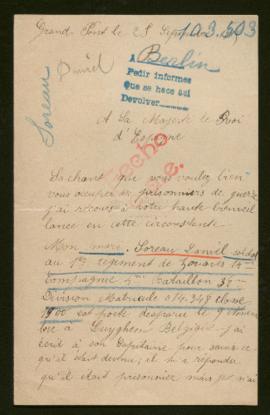 Grand Pont le 25 Sept
103.503
A Berlin
Pedir informes
Que se hace así
Devolver
Soreau
Daniel
A La Majesté le Roi
d'Espagne
Sachant que vous voulez bien
vous occuper des prisonniers de guerre
j'ai recours à votre haute bienveil
lance en cette circonstance
Mon mari, Soreau Daniel soldat
au 1er régiment de Zouaves 14e
Compagnie 4e Bataillon 38e
Division Matricule 014.348 classe
1900 est porté disparu le 9 Novem
bre à Luyghem Belgique j'ai
écrit à son Capitaine pour savoir ce
qu'il était devenu, il m'a répondu
qu'il était prisonnier mais je n'ai